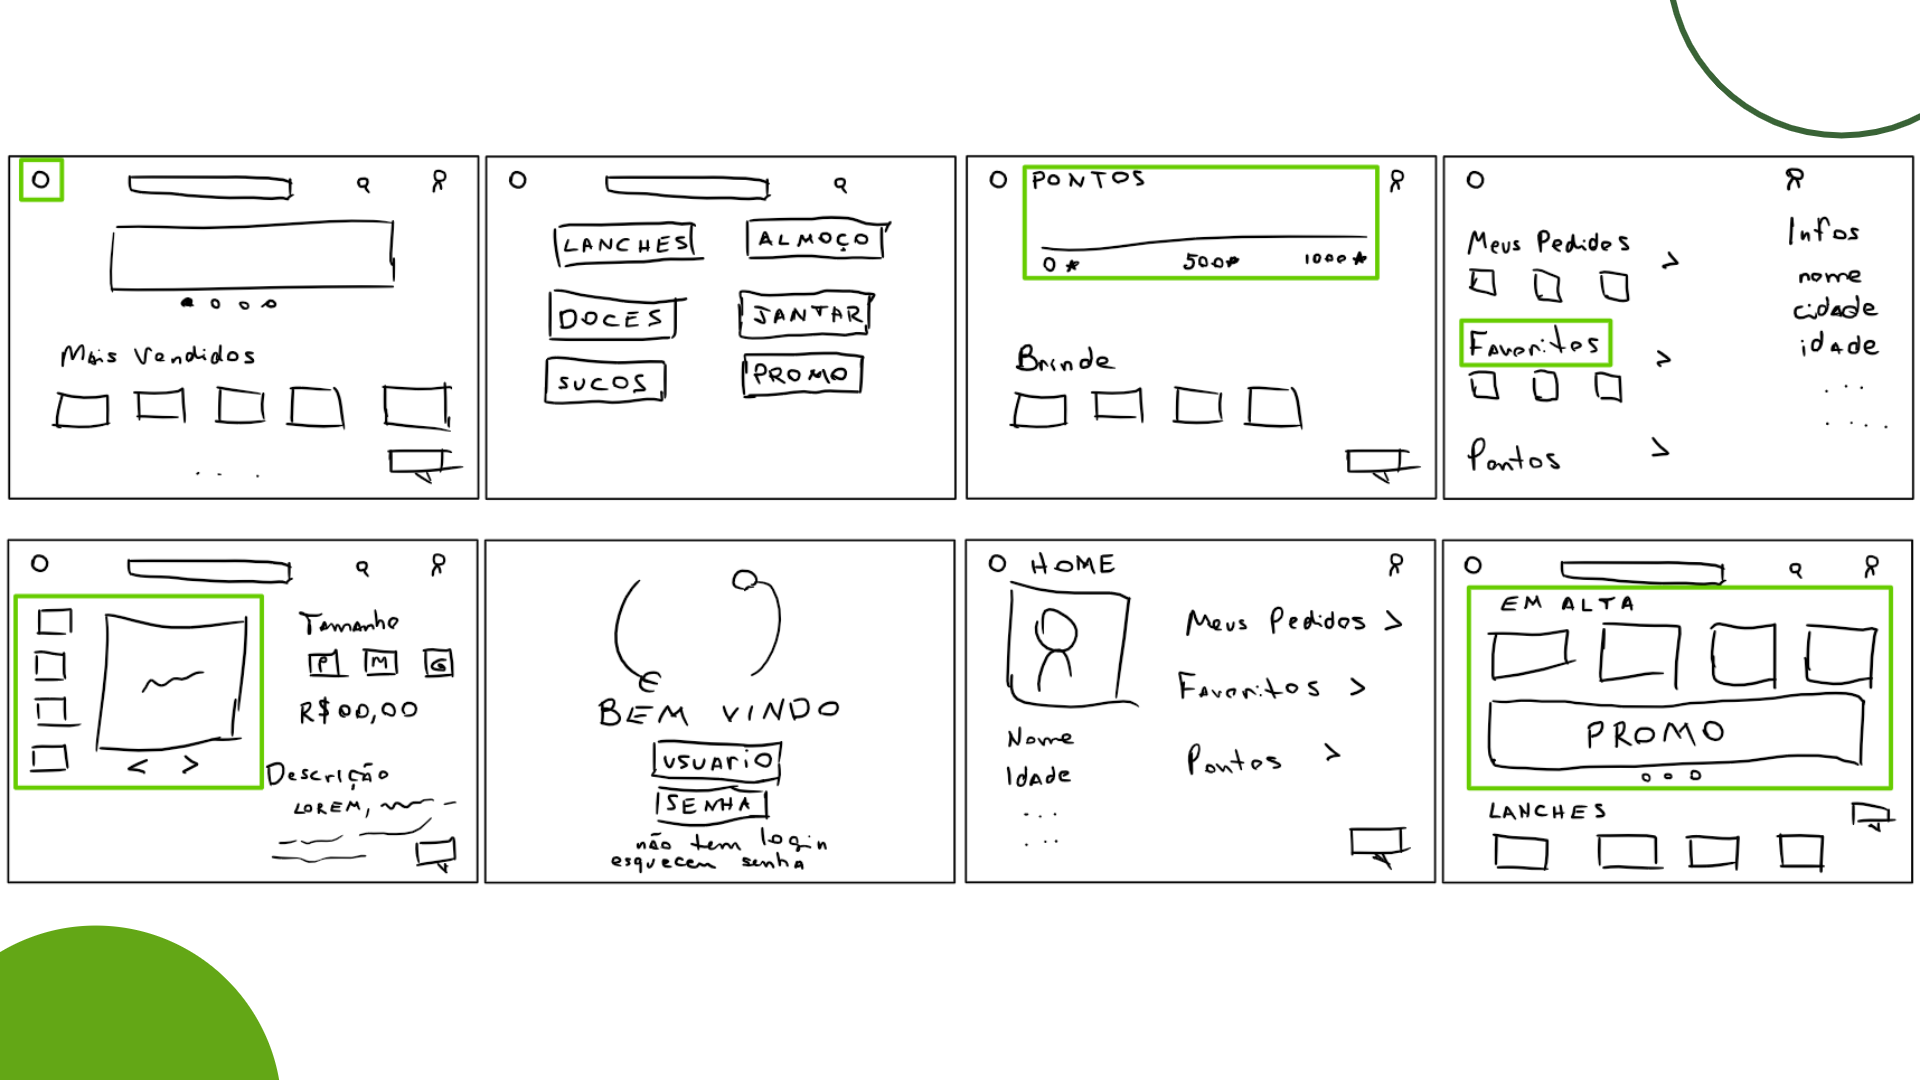 Mais Vendidos
LANCHES
ALMOÇO
DOCES
JANTAR
SUCOS
PROMO
PONTOS
0 * 500* 1000 *
Brinde
Meus Pedidos >
Favoritos >
Pontos >
Infos
nome
cidade
idade
. . .
. . . .
Tamanho
P M G
R$00,00
< >
Descrição
LOREM,
BEM VINDO
USUARIO
SENHA
não tem login
esqueceu senha
HOME
Meus Pedidos >
Favoritos >
Pontos >
Nome
Idade
. . .
. . .
EM ALTA
PROMO
LANCHES